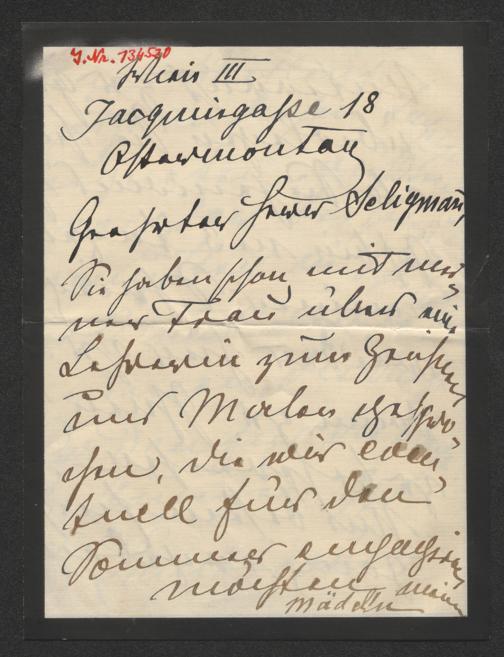 J. Nr. 134520
Wien III
Jacquingaße 18
Ostermontag
Geehrter Herr Seligmann,
Sie haben schon mit mei-
ner Frau über eine
Lehrerin zum Zeichnen
und Malen gespro-
chen, die wir even-
tuell für den
Sommer engagiren
möchten
Mädeln